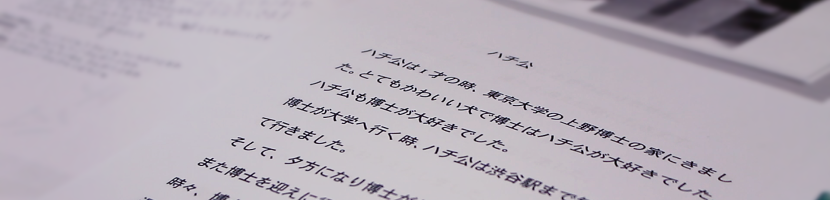 ハチ公
ハチ公は1才の時、東京大学の上野博士の家にきまし
た。とてもかわいい犬で博士はハチ公が大好きでした
ハチ公も博士が大好きでした。
博士が大学へ行く時、ハチ公は渋谷駅まで
て行きました。
そして、夕方になり博士が
また博士を迎えに
時々、博